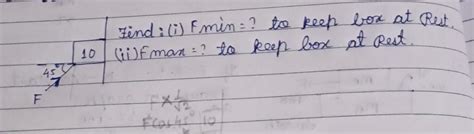 Find: (i) Fmin=? to keep box at Rest.
10 (ii) Fmax=? to keep box at Rest.
45°
F
F×1/√2
Fcos45° 10